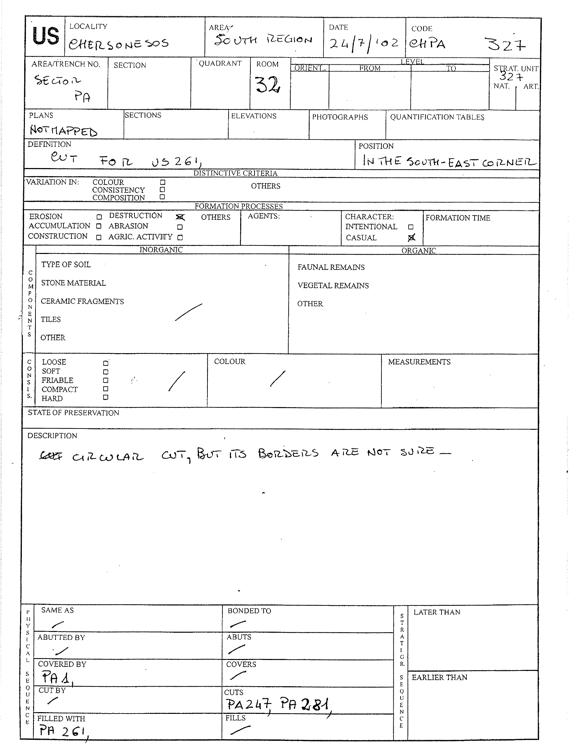 US
LOCALITY
CHERSONESOS
AREA
SOUTH REGION
DATE
24/7/'02
CODE
CHPA 327
AREA/TRENCH NO.
SECTOR
PA
SECTION
QUADRANT
ROOM
32
LEVEL
ORIENT. FROM TO
STRAT. UNIT
327
NAT. ART.
PLANS
NOT MAPPED
SECTIONS
ELEVATIONS
PHOTOGRAPHS
QUANTIFICATION TABLES
DEFINITION
CUT FOR US 261,
POSITION
IN THE SOUTH-EAST CORNER
DISTINCTIVE CRITERIA
VARIATION IN: COLOUR
CONSISTENCY
COMPOSITION
OTHERS
FORMATION PROCESSES
EROSION DESTRUCTION OTHERS
ACCUMULATION ABRASION
CONSTRUCTION AGRIC. ACTIVITY
AGENTS:
CHARACTER:
INTENTIONAL
CASUAL
FORMATION TIME
COMPONENTS
INORGANIC
TYPE OF SOIL
STONE MATERIAL
CERAMIC FRAGMENTS
TILES
OTHER
ORGANIC
FAUNAL REMAINS
VEGETAL REMAINS
OTHER
CONSIS.
LOOSE
SOFT
FRIABLE
COMPACT
HARD
COLOUR
MEASUREMENTS
STATE OF PRESERVATION
DESCRIPTION
CIRCULAR CUT, BUT ITS BORDERS ARE NOT SURE —
PHYSICAL SEQUENCE
SAME AS
BONDED TO
ABUTTED BY
ABUTS
COVERED BY
PA1,
COVERS
CUT BY
CUTS
PA247, PA 281,
FILLED WITH
PA 261,
FILLS
STRATIGR. SEQUENCE
LATER THAN
EARLIER THAN